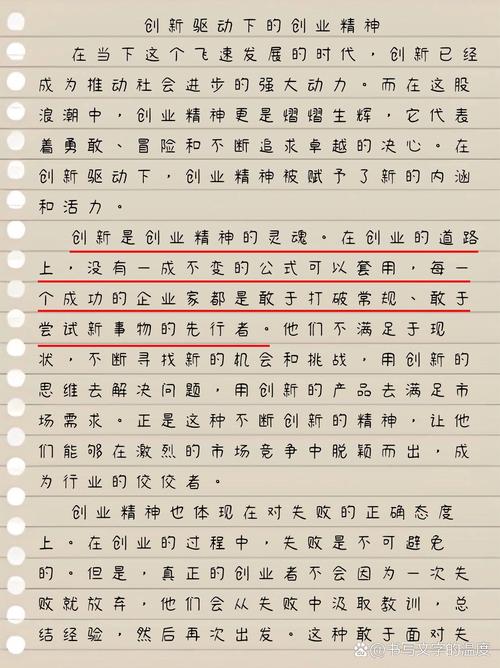 创新驱动下的创业精神
在当下这个飞速发展的时代，创新已经
成为推动社会进步的强大动力。而在这股
浪潮中，创业精神更是熠熠生辉，它代表
着勇敢、冒险和不断追求卓越的决心。在
创新驱动下，创业精神被赋予了新的内涵
和活力。
创新是创业精神的灵魂。在创业的道路
上，没有一成不变的公式可以套用，每一
个成功的企业家都是敢于打破常规、敢于
尝试新事物的先行者。他们不满足于现
状，不断寻找新的机会和挑战，用创新的
思维去解决问题，用创新的产品去满足市
场需求。正是这种不断创新的精神，让他
们能够在激烈的市场竞争中脱颖而出，成
为行业的佼佼者。
创业精神也体现在对失败的正确态度
上。在创业的过程中，失败是不可避免
的。但是，真正的创业者不会因为一次失
败就放弃，他们会从失败中汲取教训，总
结经验，然后再次出发。这种敢于面对失
书写文字的温度